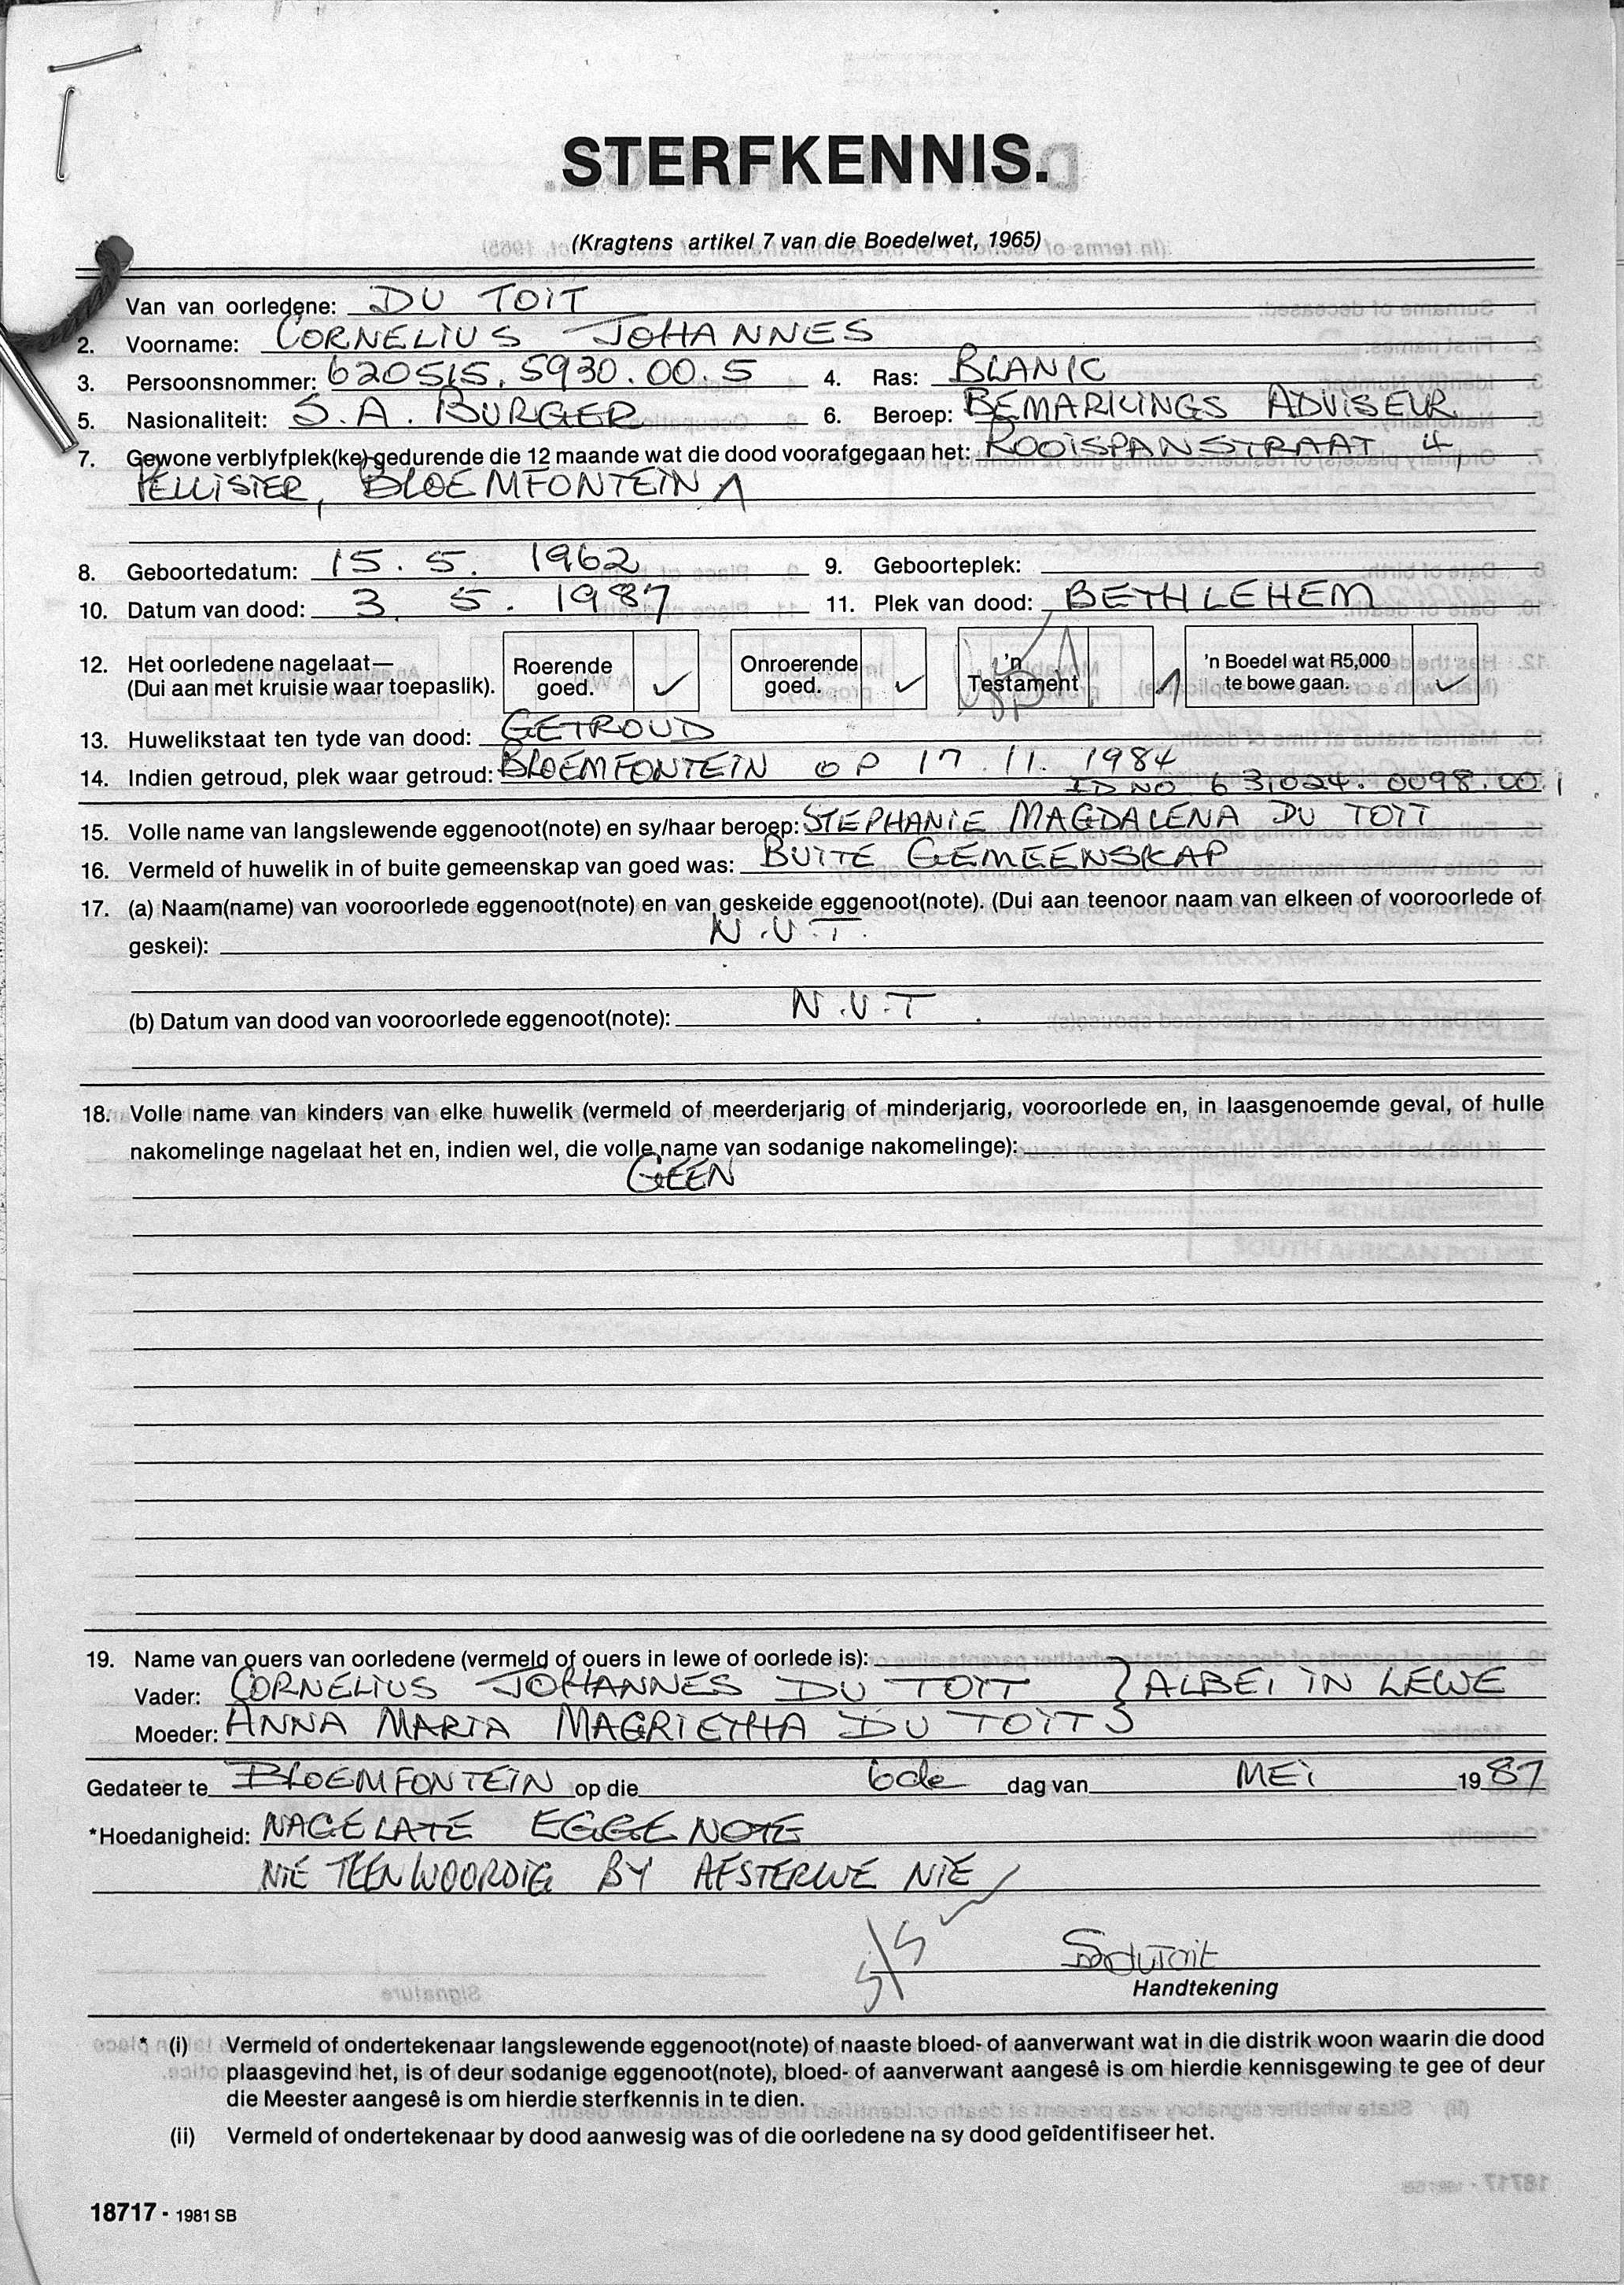 STERFKENNIS.
(Kragtens artikel 7 van die Boedelwet, 1965)
Van van oorledene: DU TOIT
2. Voorname: CORNELIUS JOHANNES
3. Persoonsnommer: 620515.5930.00.5 4. Ras: BLANK
5. Nasionaliteit: S.A. BURGER 6. Beroep: BEMARKINGS ADVISEUR
7. Gewone verblyfplek(ke) gedurende die 12 maande wat die dood voorafgegaan het: ROOISPANSTRAAT 4,
PELLISIER, BLOEMFONTEIN
8. Geboortedatum: 15.5.1962 9. Geboorteplek:
10. Datum van dood: 3.5.1987 11. Plek van dood: BETHLEHEM
12. Het oorledene nagelaat—
(Dui aan met kruisie waar toepaslik).
Roerende
goed. ✓
Onroerende
goed. ✓
'n
Testament
'n Boedel wat R5,000
te bowe gaan. ✓
13. Huwelikstaat ten tyde van dood: GETROUD
14. Indien getroud, plek waar getroud: BLOEMFONTEIN OP 17.11.1984
ID NO 631024.0098.00.1
15. Volle name van langslewende eggenoot(note) en sy/haar beroep: STEPHANIE MAGDALENA DU TOIT
16. Vermeld of huwelik in of buite gemeenskap van goed was: BUITE GEMEENSKAP
17. (a) Naam(name) van vooroorlede eggenoot(note) en van geskeide eggenoot(note). (Dui aan teenoor naam van elkeen of vooroorlede of
geskei): N.V.T.
(b) Datum van dood van vooroorlede eggenoot(note): N.V.T.
18. Volle name van kinders van elke huwelik (vermeld of meerderjarig of minderjarig, vooroorlede en, in laasgenoemde geval, of hulle
nakomelinge nagelaat het en, indien wel, die volle name van sodanige nakomelinge):
GEEN
19. Name van ouers van oorledene (vermeld of ouers in lewe of oorlede is):
Vader: CORNELIUS JOHANNES DU TOIT } ALBEI IN LEWE
Moeder: ANNA MARIA MAGRIETHA DU TOIT
Gedateer te BLOEMFONTEIN op die 6de dag van MEI 1987
*Hoedanigheid: NAGELATE EGGENOTE
NIE TEENWOORDIG BY AFSTERWE NIE
SMduToit
Handtekening
* (i) Vermeld of ondertekenaar langslewende eggenoot(note) of naaste bloed- of aanverwant wat in die distrik woon waarin die dood
plaasgevind het, is of deur sodanige eggenoot(note), bloed- of aanverwant aangesê is om hierdie kennisgewing te gee of deur
die Meester aangesê is om hierdie sterfkennis in te dien.
(ii) Vermeld of ondertekenaar by dood aanwesig was of die oorledene na sy dood geïdentifiseer het.
18717 - 1981 SB